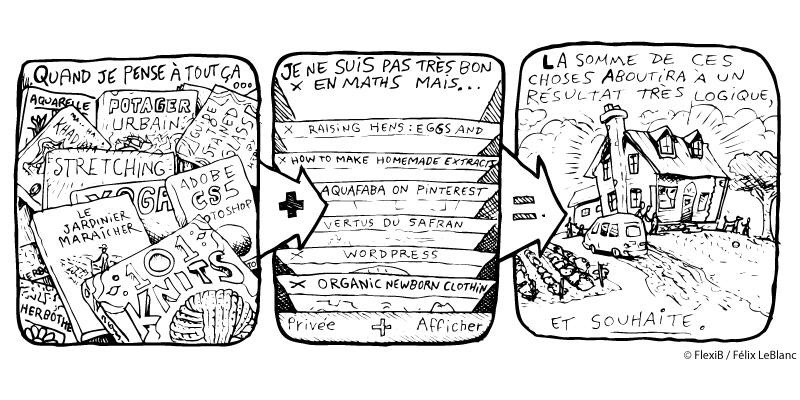 QUAND JE PENSE À TOUT ÇA...
AQUARELLE
POTAGER
URBAIN
STRETCHING
YOGA
ADOBE
CS5
PHOTOSHOP
LE
JARDINIER
MARAÎCHER
101
KNITS
JE NE SUIS PAS TRÈS BON
EN MATHS MAIS...
x RAISING HENS: EGGS AND
x HOW TO MAKE HOMEMADE EXTRACTS
AQUAFABA ON PINTEREST
VERTUS DU SAFRAN
x WORDPRESS
x ORGANIC NEWBORN CLOTHIN
Privée + Afficher
+
=
LA SOMME DE CES
CHOSES ABOUTIRA À UN
RÉSULTAT TRÈS LOGIQUE,
ET SOUHAITÉ.
© FlexiB / Félix LeBlanc